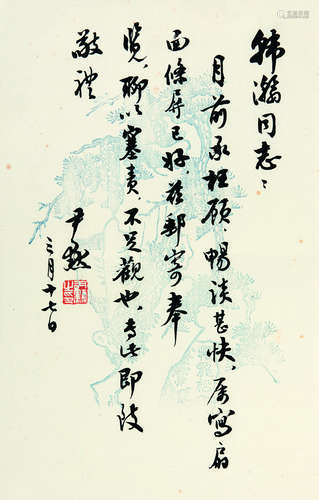 韩瀚同志：
月前承枉顾，畅谈甚快，属写扇
面条屏已好，兹邮寄奉
览，聊以塞责，不足观也，专此即致
敬礼
尹默
三月十七日